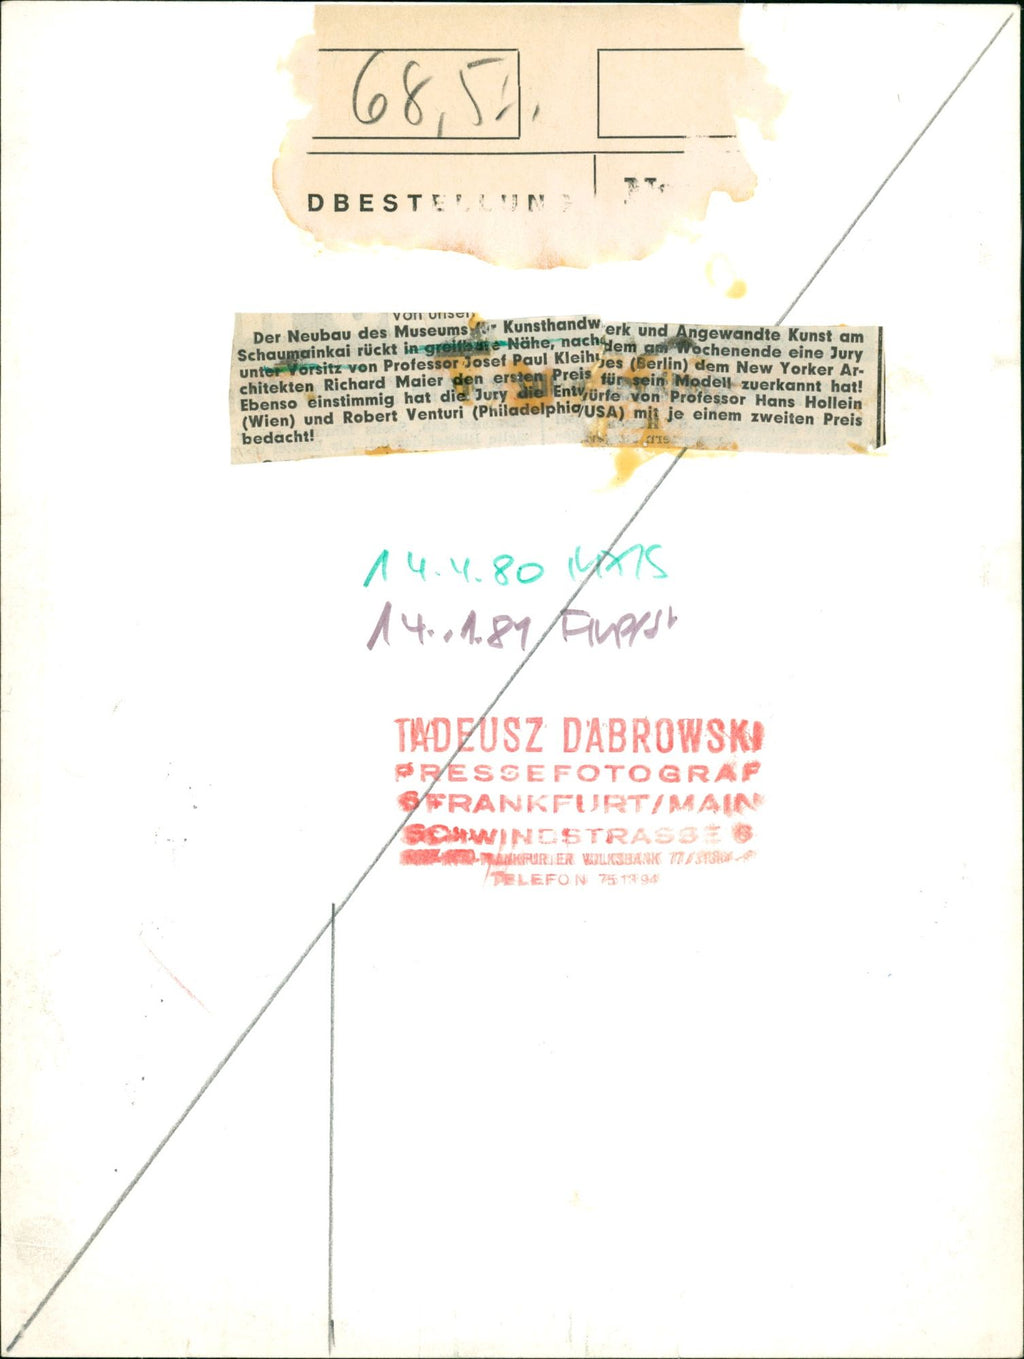 68,5%
DBESTELLUNG
Von unser
Der Neubau des Museums für Kunsthandwerk und Angewandte Kunst am
Schaumainkai rückt in greifbare Nähe, nachdem am Wochenende eine Jury
unter Vorsitz von Professor Josef Paul Kleihues (Berlin) dem New Yorker Ar-
chitekten Richard Maier den ersten Preis für sein Modell zuerkannt hat!
Ebenso einstimmig hat die Jury die Entwürfe von Professor Hans Hollein
(Wien) und Robert Venturi (Philadelphia/USA) mit je einem zweiten Preis
bedacht!
14.4.80
14.1.81
TADEUSZ DABROWSKI
PRESSEFOTOGRAF
6 FRANKFURT/MAIN
SCHWINDSTRASSE 6
FRANKFURTER VOLKSBANK
TELEFON 75 13 94